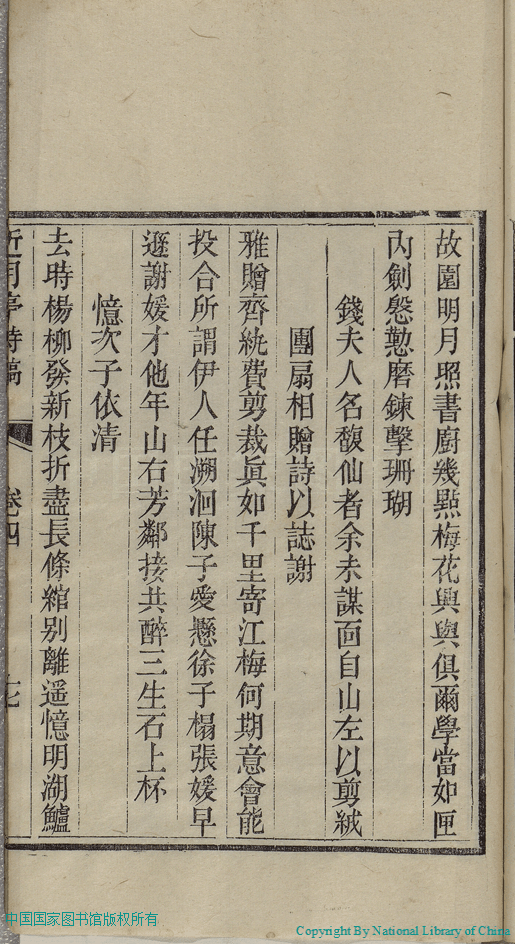 故園明月照書廚幾點梅花興與俱爾學當如匣
內劍慇懃磨鍊擊珊瑚
錢夫人名馥仙者余未謀面自山左以剪絨
團扇相贈詩以誌謝
雅贈齊紈費剪裁眞如千里寄江梅何期意會能
投合所謂伊人任溯洄陳子愛懸徐子榻張媛早
遜謝媛才他年山右芳鄰接共醉三生石上杯
憶次子依清
去時楊柳發新枝折盡長條綰别離遥憶明湖鱸
近月亭詩稿
卷四
十七
中国国家图书馆版权所有
Copyright By National Library of China